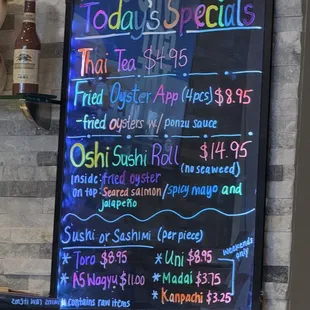 Today's Specials
Thai Tea $4.95
Fried Oyster App (4pcs) $8.95
-fried oysters w/ ponzu sauce
Oshi Sushi Roll $14.95
(no seaweed)
inside: fried oyster
on top: Seared salmon/spicy mayo and
jalapeño
Sushi or Sashimi (per piece)
* Toro $8.95
* Uni $8.95
weekends only
* A5 Wagyu $11.00
* Madai $3.75
* Kanpachi $3.25
* contains raw items